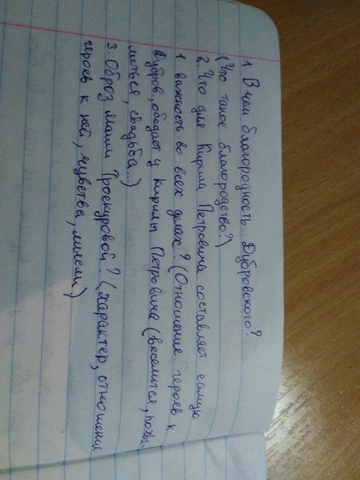 1. В чём благородность Дубровского?
(Что такое благородство?)
2. Что для Кирила Петровича составляет самую
1 важность во всех делах? (Отношение героев к
Дубров, обедает у Кирилы Петровича (веселится,
миться, свадьба...)
3. Образ Маши Троекуровой? (характер, отношения
героев к ней, чувства, мысли)